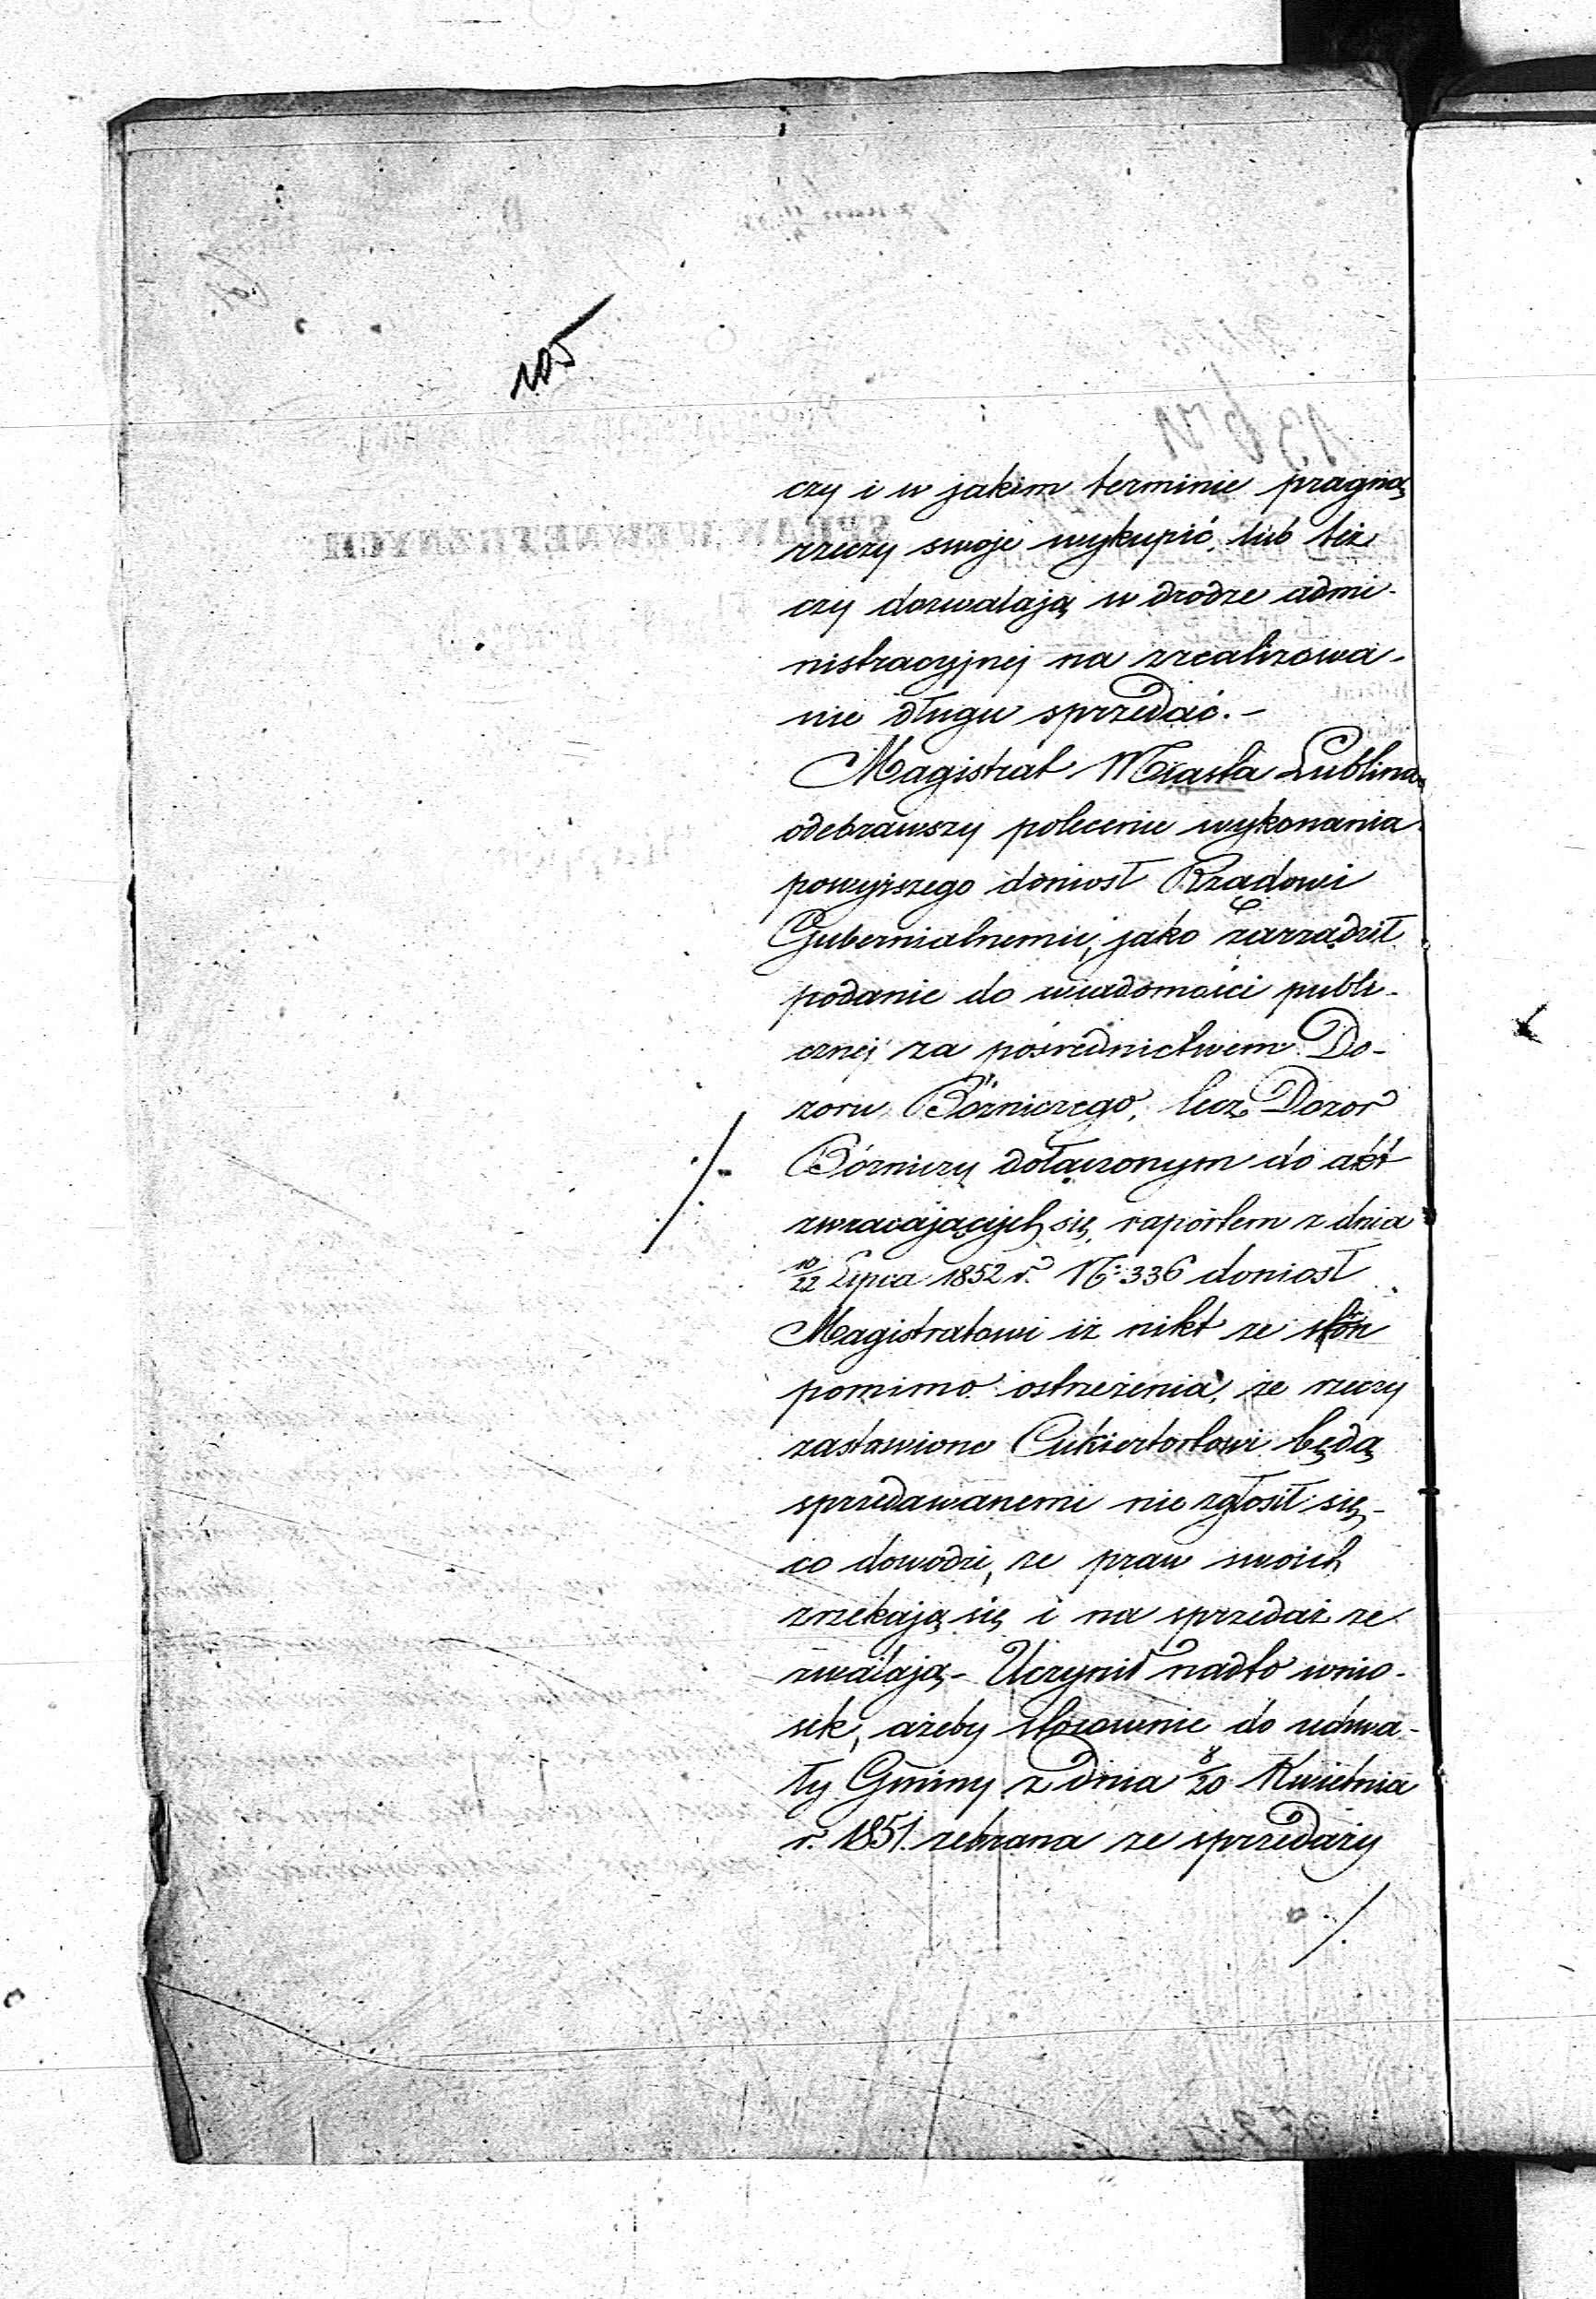 105
czy i w jakim terminie pragną
rzeczy swoje wykupić, lub też
czy dozwalają w drodze admi-
nistracyjnej na zrealizowa-
nie długu sprzedać.-
Magistrat Miasta Lublina
odebrawszy polecenie wykonania
powyższego doniosł Rządowi
Gubernialnemu, jako zarządził
podanie do wiadomości publi-
cznej za pośrednictwem Do-
zoru Bóżniczego, lecz Dozor
Bóżniczy dołączonym do akt
zwracających się, raportem z dnia
10/22 Lipca 1852 r. N: 336 doniosł
Magistratowi iż nikt ze stron
pomimo ostrzeżenia, że rzeczy
zastawione Cukiertortowi będą
sprzedawanemi nie zgłosił się,-
co dowodzi, że praw swoich
zrzekają się i na sprzedaż ze
zwalają- Uczynił nadto wnio-
sek, ażeby stosownie do uchwa-
ły Gminy z dnia 8/20 Kwietnia
r. 1851. zebrana ze sprzedaży